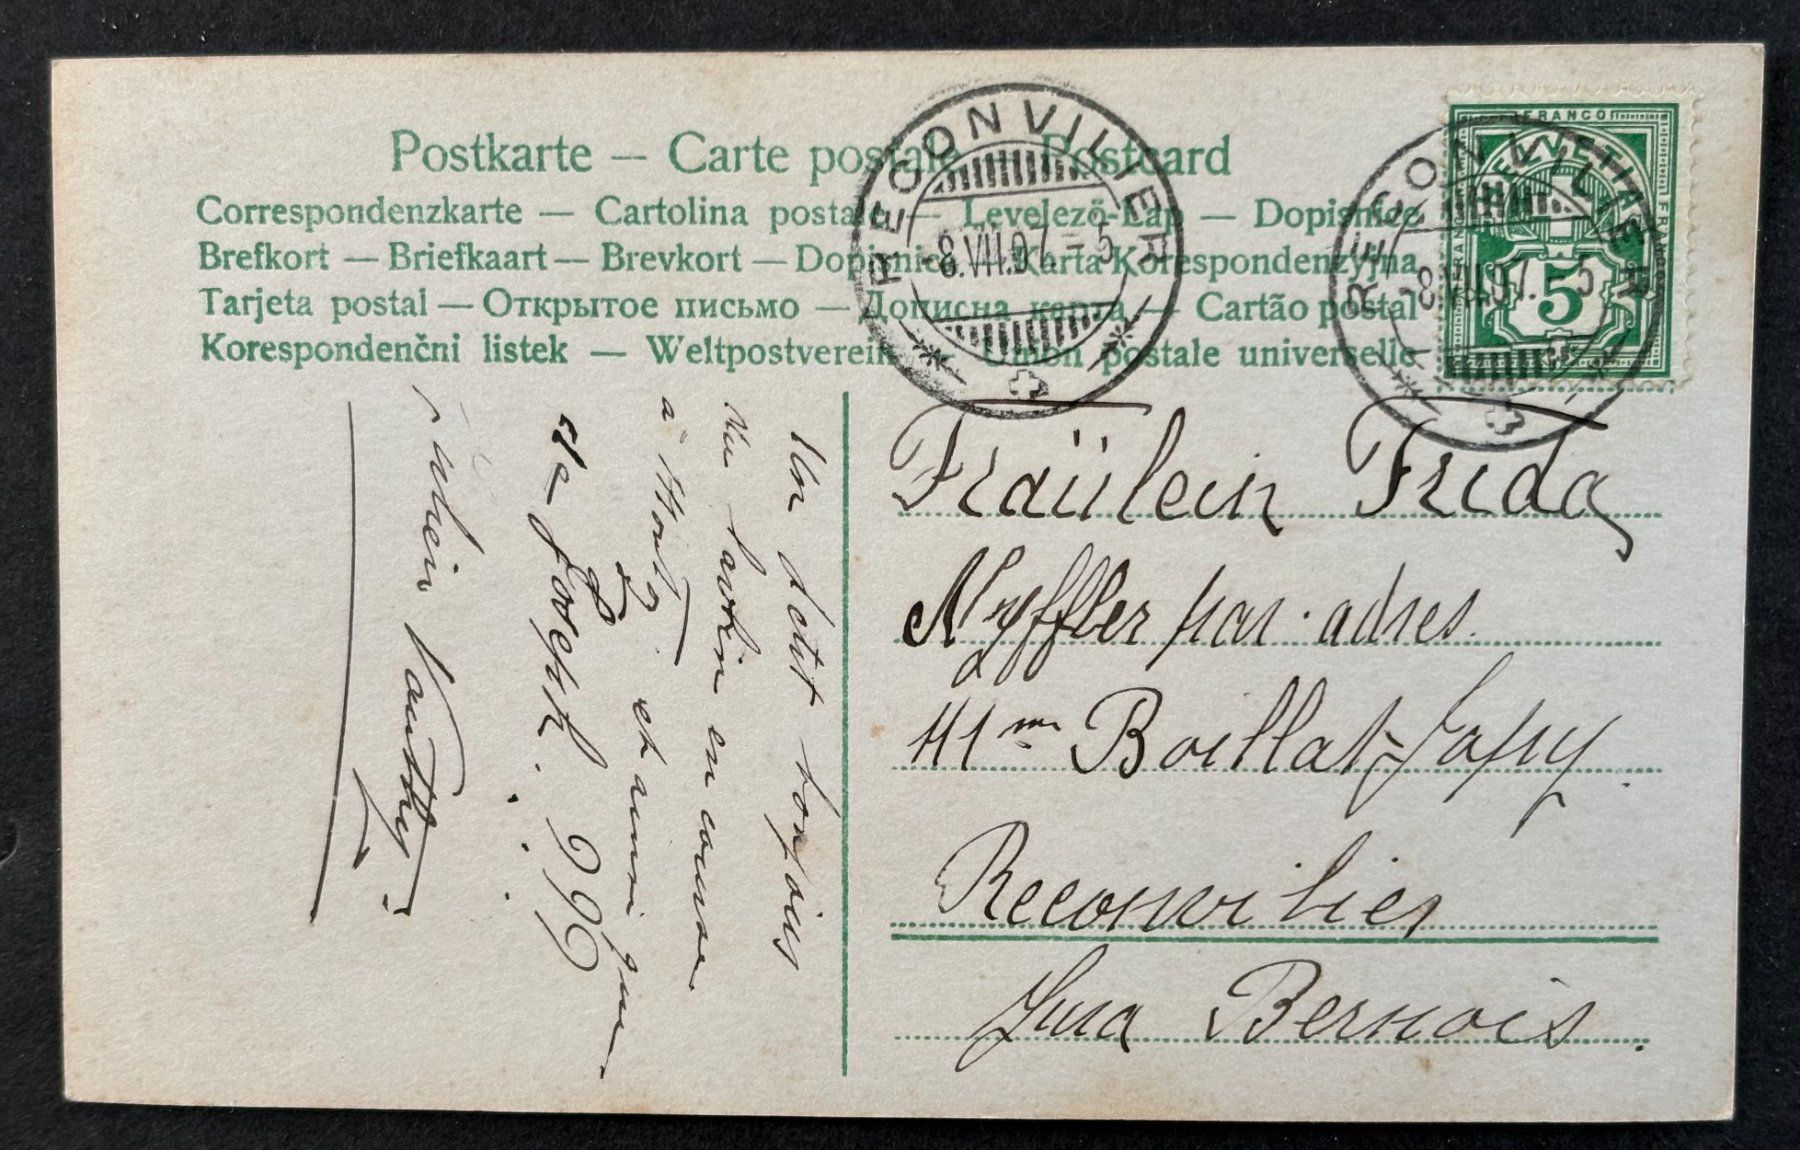 Postkarte — Carte postale — Postcard
Correspondenzkarte — Cartolina postale — Levelező-Lap — Dopisnice
Brefkort — Briefkaart — Brevkort — Dopisnica — Karta Korespondenzyjna
Tarjeta postal — Открытое письмо — Дописна карта — Cartão postal
Korespondenčni listek — Weltpostverein — Union postale universelle
RECONVILIER
-8.VII.07.-5
RECONVILIER
-8.VII.07. 5
FRANCO
HELVETIA
FRANCO
FRANCO
5
Fraülein Frida
Nyffler par adres
Mme Boillat-
Reconvilier
Jura Bernois.
Un petit bonjour
en course
a et ainsi que
de